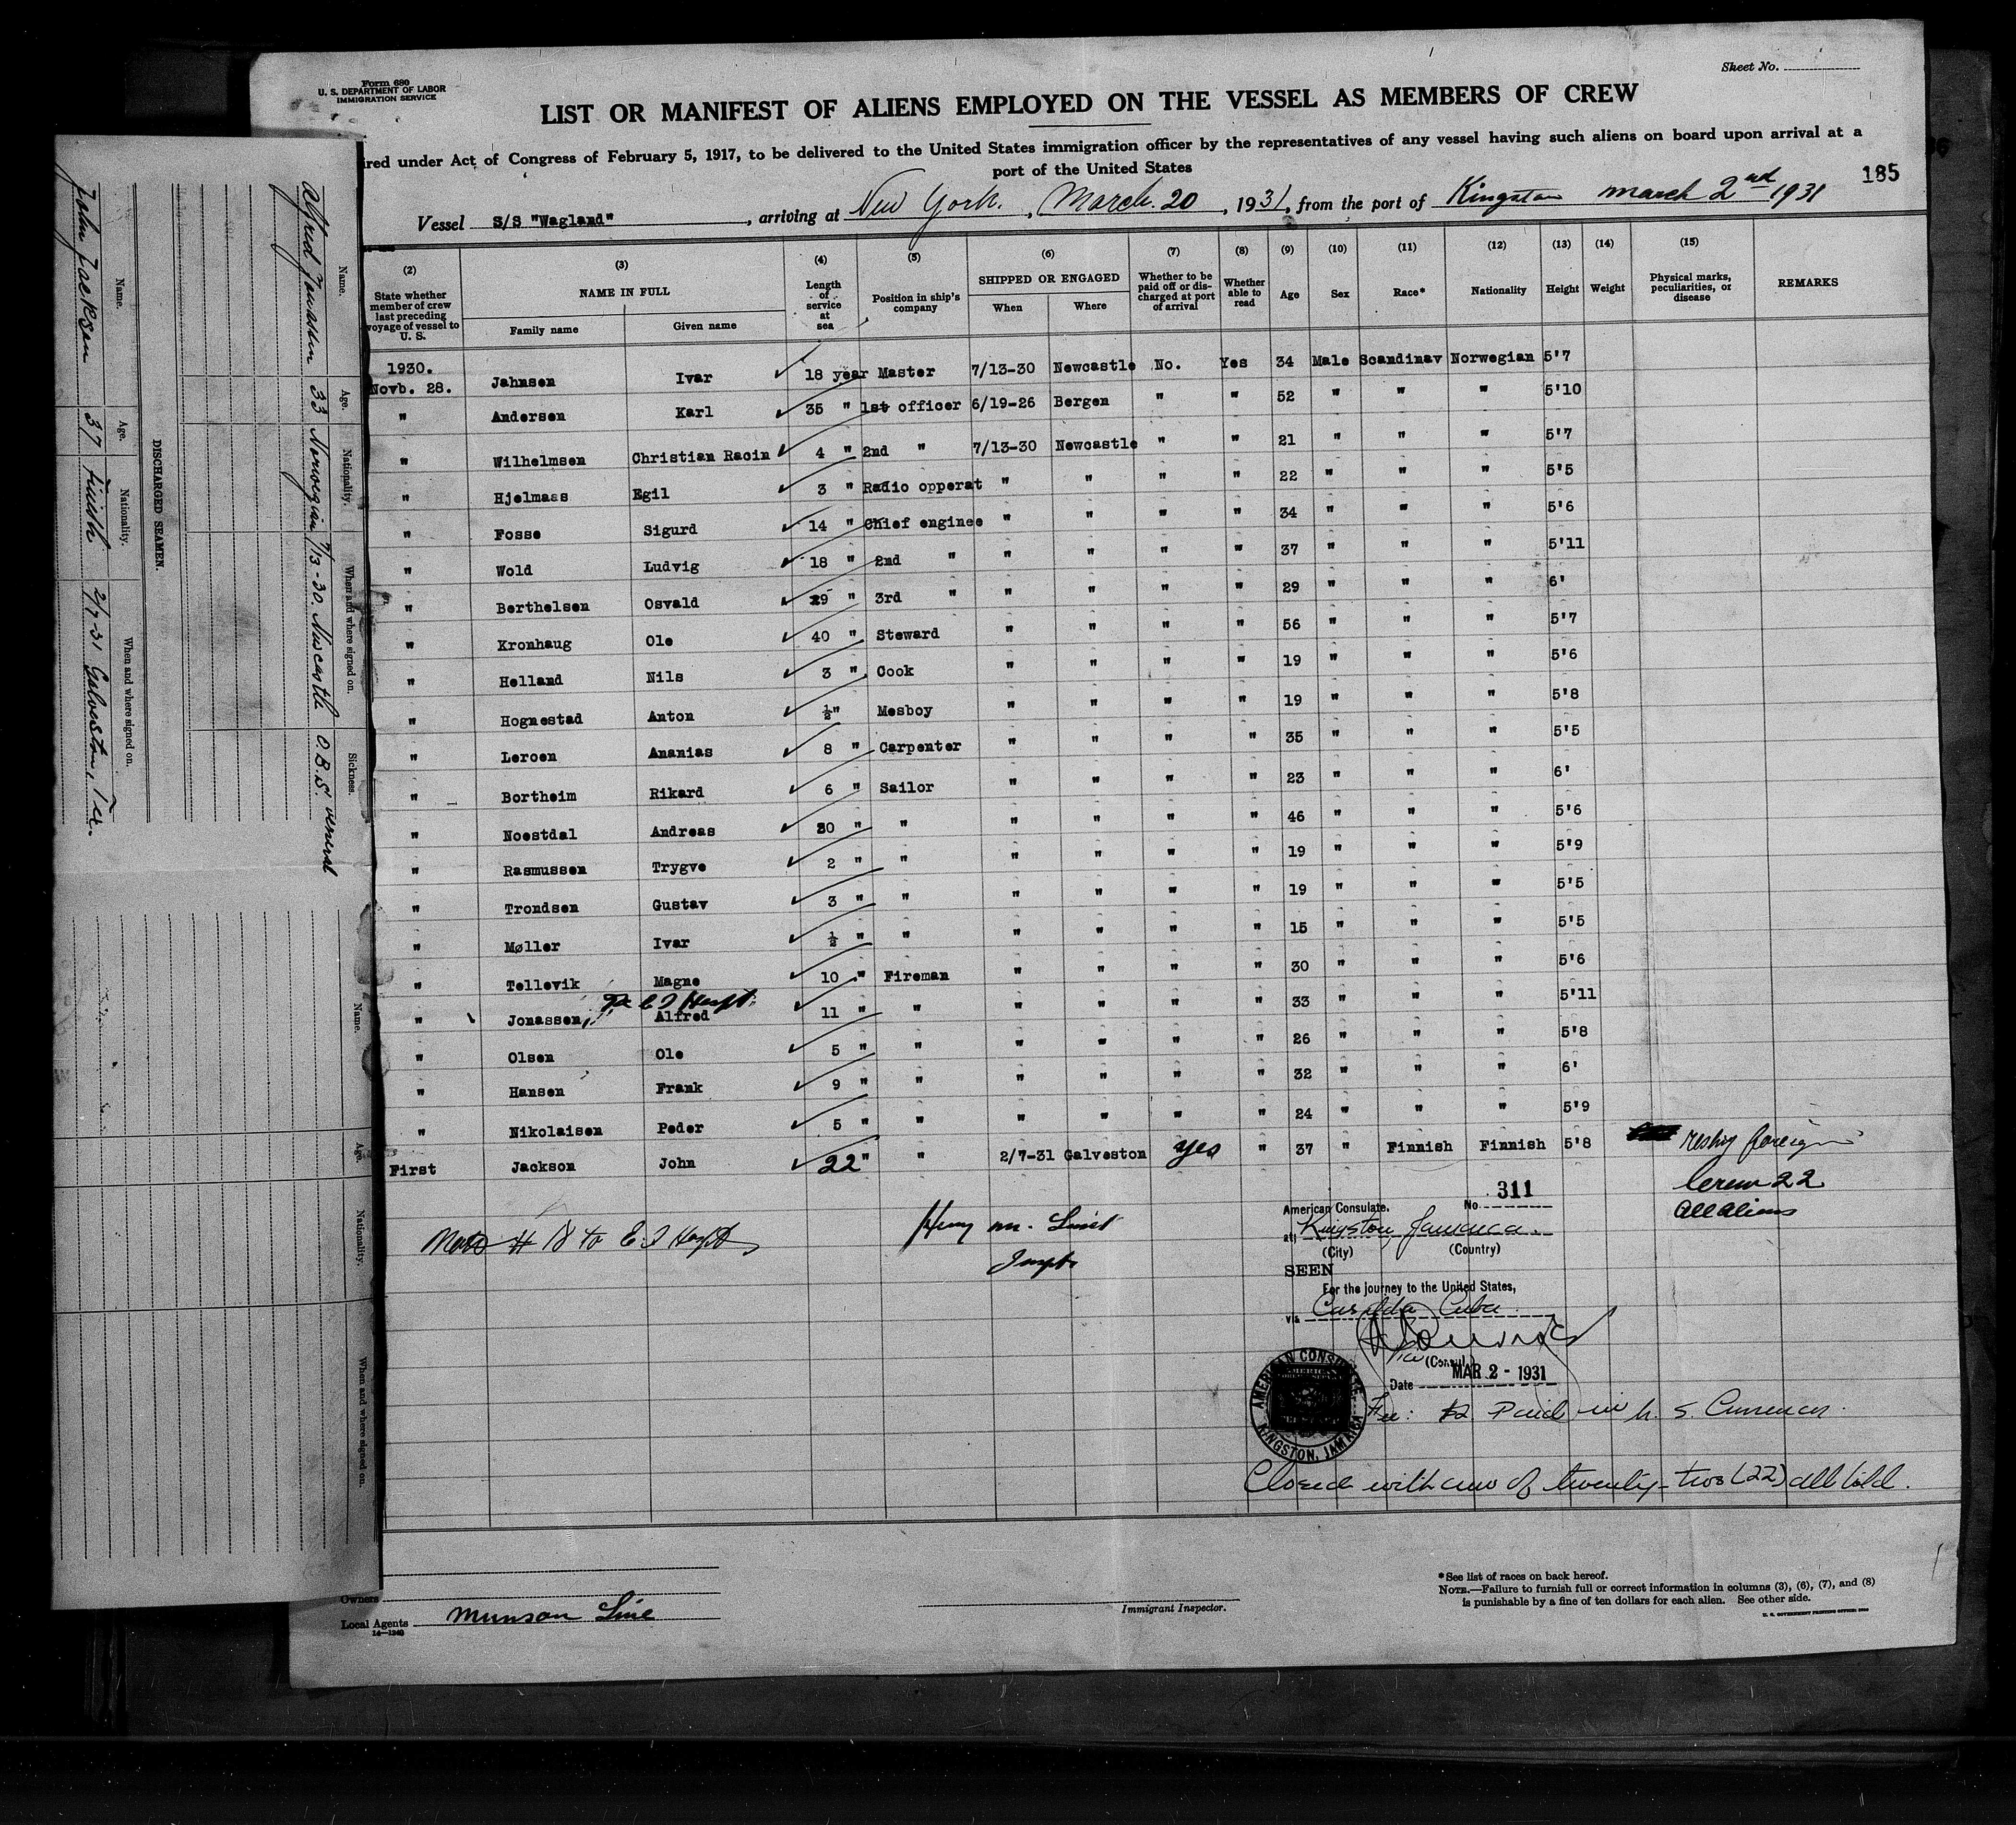 Form 680
U. S. DEPARTMENT OF LABOR
IMMIGRATION SERVICE
Sheet No.
LIST OR MANIFEST OF ALIENS EMPLOYED ON THE VESSEL AS MEMBERS OF CREW
ired under Act of Congress of February 5, 1917, to be delivered to the United States immigration officer by the representatives of any vessel having such aliens on board upon arrival at a
port of the United States
185
Vessel S/S "Wagland", arriving at New York., March. 20, 1931, from the port of Kingston march 2nd 1931
(2) (3) (4) (5) (6) (7) (8) (9) (10) (11) (12) (13) (14) (15)
State whether member of crew last preceding voyage of vessel to U. S.
NAME IN FULL
Family name Given name
Length of service at sea
Position in ship's company
SHIPPED OR ENGAGED
When Where
Whether to be paid off or discharged at port of arrival
Whether able to read
Age Sex Race* Nationality Height Weight
Physical marks, peculiarities, or disease
REMARKS
1930.
Novb. 28. Jahnsen Ivar 18 year Master 7/13-30 Newcastle No. Yes 34 Male Scandinav Norwegian 5'7
" Andersen Karl 35 " 1st officer 6/19-26 Bergen " " 52 " " " 5'10
" Wilhelmsen Christian Racin 4 " 2nd " 7/13-30 Newcastle " " 21 " " " 5'7
" Hjelmass Egil 3 " Radio opperat " " " " 22 " " " 5'5
" Fosse Sigurd 14 " Chief enginee " " " " 34 " " " 5'6
" Wold Ludvig 18 " 2nd " " " " " 37 " " " 5'11
" Berthelsen Osvald 29 " 3rd " " " " " 29 " " " 6'
" Kronhaug Ole 40 " Steward " " " " 56 " " " 5'7
" Helland Nils 3 " Cook " " " " 19 " " " 5'6
" Hognestad Anton ½ " Mesboy " " " " 19 " " " 5'8
" Leroen Ananias 8 " Carpenter " " " " 35 " " " 5'5
" Bortheim Rikard 6 " Sailor " " " " 23 " " " 6'
" Noestdal Andreas 30 " " " " " " 46 " " " 5'6
" Rasmussen Trygve 2 " " " " " " 19 " " " 5'9
" Trondsen Gustav 3 " " " " " " 19 " " " 5'5
" Møller Ivar ½ " " " " " " 15 " " " 5'5
" Tellevik Magne 10 " Fireman " " " " 30 " " " 5'6
To E I Hospt.
" Jonassen Alfred 11 " " " " " " 33 " " " 5'11
" Olsen Ole 5 " " " " " " 26 " " " 5'8
" Hansen Frank 9 " " " " " " 32 " " " 6'
" Nikolaisen Peder 5 " " " " " " 24 " " " 5'9
First Jackson John 22 " " 2/7-31 Galveston yes " 37 " Finnish Finnish 5'8 reship foreign
Crew 22
All aliens
# 18 to E I Hospt
Insptr
American Consulate. No. 311
at Kingston, Jamaica.
(City) (Country)
SEEN
For the journey to the United States,
via Casilda Cuba.
Vice (Consul)
Date MAR 2 - 1931
AMERICAN CONSULATE KINGSTON, JAMAICA
Fee: $2 Paid in U. S. Currency.
Closed with crew of twenty-two (22) all told.
Owners
Local Agents Munson Line
14—1240
Immigrant Inspector.
*See list of races on back hereof.
NOTE.—Failure to furnish full or correct information in columns (3), (6), (7), and (8)
is punishable by a fine of ten dollars for each alien. See other side.
U. S. GOVERNMENT PRINTING OFFICE
Name. Age. Nationality. When and where signed on. Sickness.
Alfred Jonassen 33 Norwegian 7/13-30. Newcastle O.B.S. veneral
DISCHARGED SEAMEN.
Name. Age. Nationality. When and where signed on.
John Jacksen 37 Finish 2/7-31 Galveston, Tex.
Name. Age. Nationality. When and where signed on.